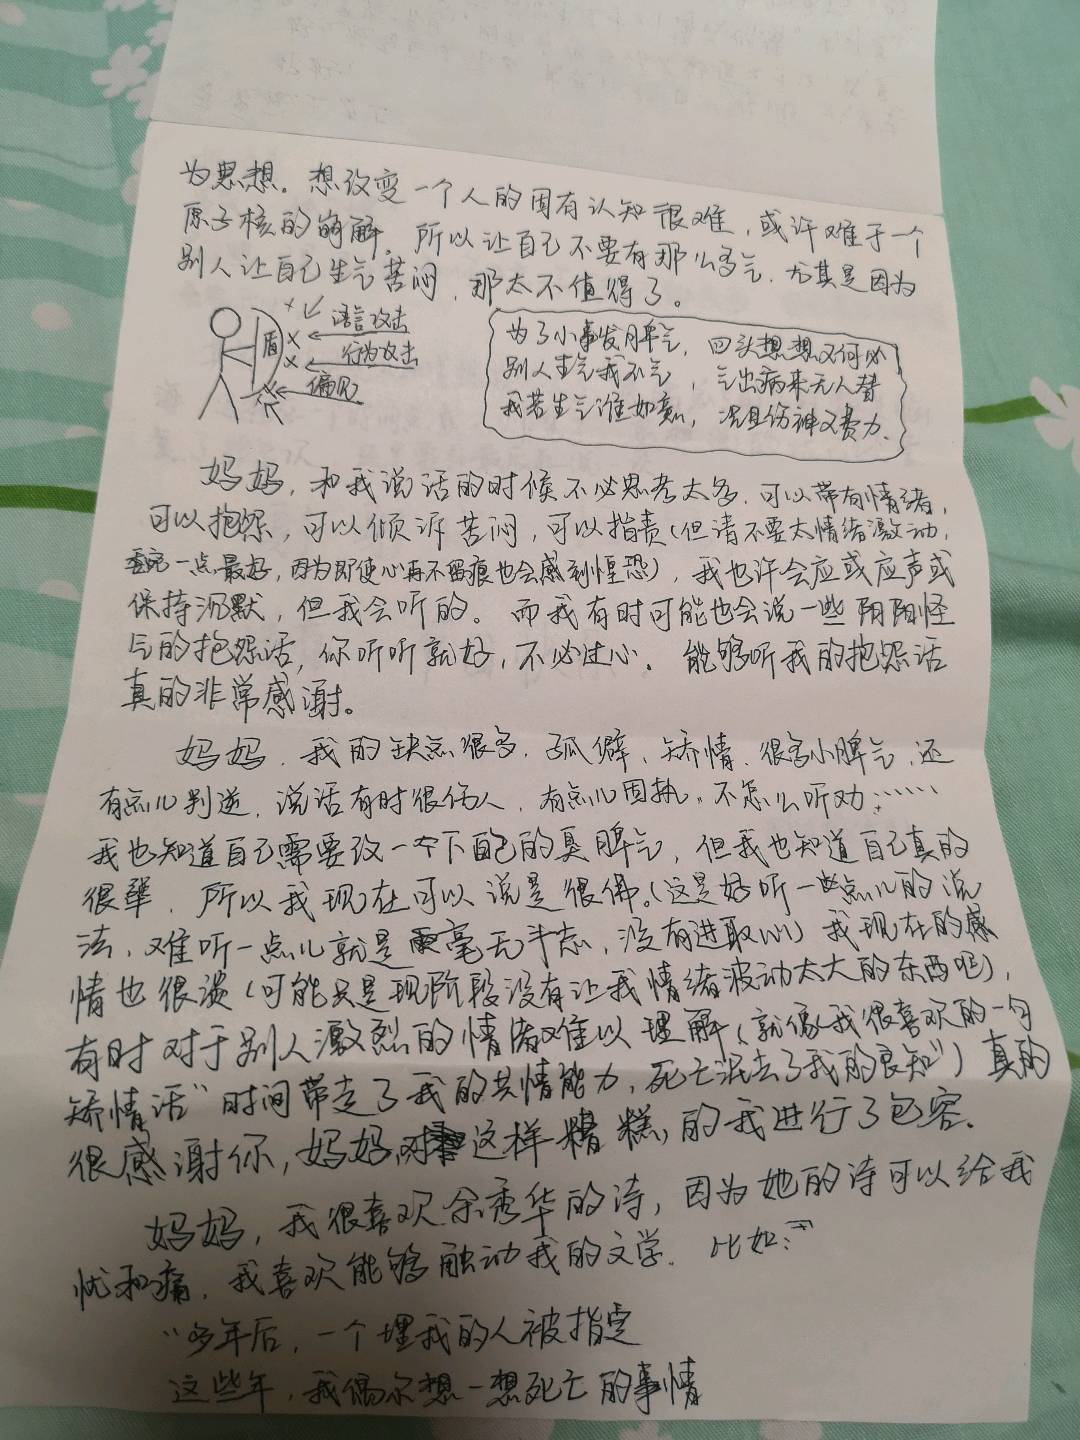 为思想。想改变一个人的固有认知很难，或许难于一个
原子核的衰解。所以让自己不要有那么多气，尤其是因为
别人让自己生气苦闷，那太不值得了。
盾
语言攻击
行为攻击
偏见
为了小事发脾气，回头想想又何必
别人生气我不气，气出病来无人替
我若生气谁如意，况且伤神又费力．
妈妈，和我说话的时候不必思考太多，可以带有情绪，
可以抱怨，可以倾诉苦闷，可以指责（但请不要太情绪激动，
一点最好，因为即使心再不留痕也会感到惶恐），我也许会应或应声或
保持沉默，但我会听的。而我有时可能也会说一些阴阳怪
气的抱怨话，你听听就好，不必过心。能够听我的抱怨话
真的非常感谢。
妈妈，我的缺点很多，孤僻，矫情，很多小脾气，还
有点儿判逆，说话有时很伤人，有点儿固执，不怎么听劝……
我也知道自己需要改一下自己的臭脾气，但我也知道自己真的
很犟，所以我现在可以说是很佛。（这是好听一些点儿的说
法，难听一点儿就是毫无斗志，没有进取心）我现在的感
情也很淡（可能只是现阶段没有让我情绪波动太大的东西吧），
有时对于别人激烈的情绪难以理解（就像我很喜欢的一句
矫情话“时间带走了我的共情能力，死亡泯去了我的良知”）真的
很感谢你，妈妈，对这样糟糕的我进行了包容．
妈妈，我很喜欢余秀华的诗，因为她的诗可以给我
忧和痛，我喜欢能够触动我的文学．比如：
“多年后，一个埋我的人被指定
这些年，我偶尔想一想死亡的事情